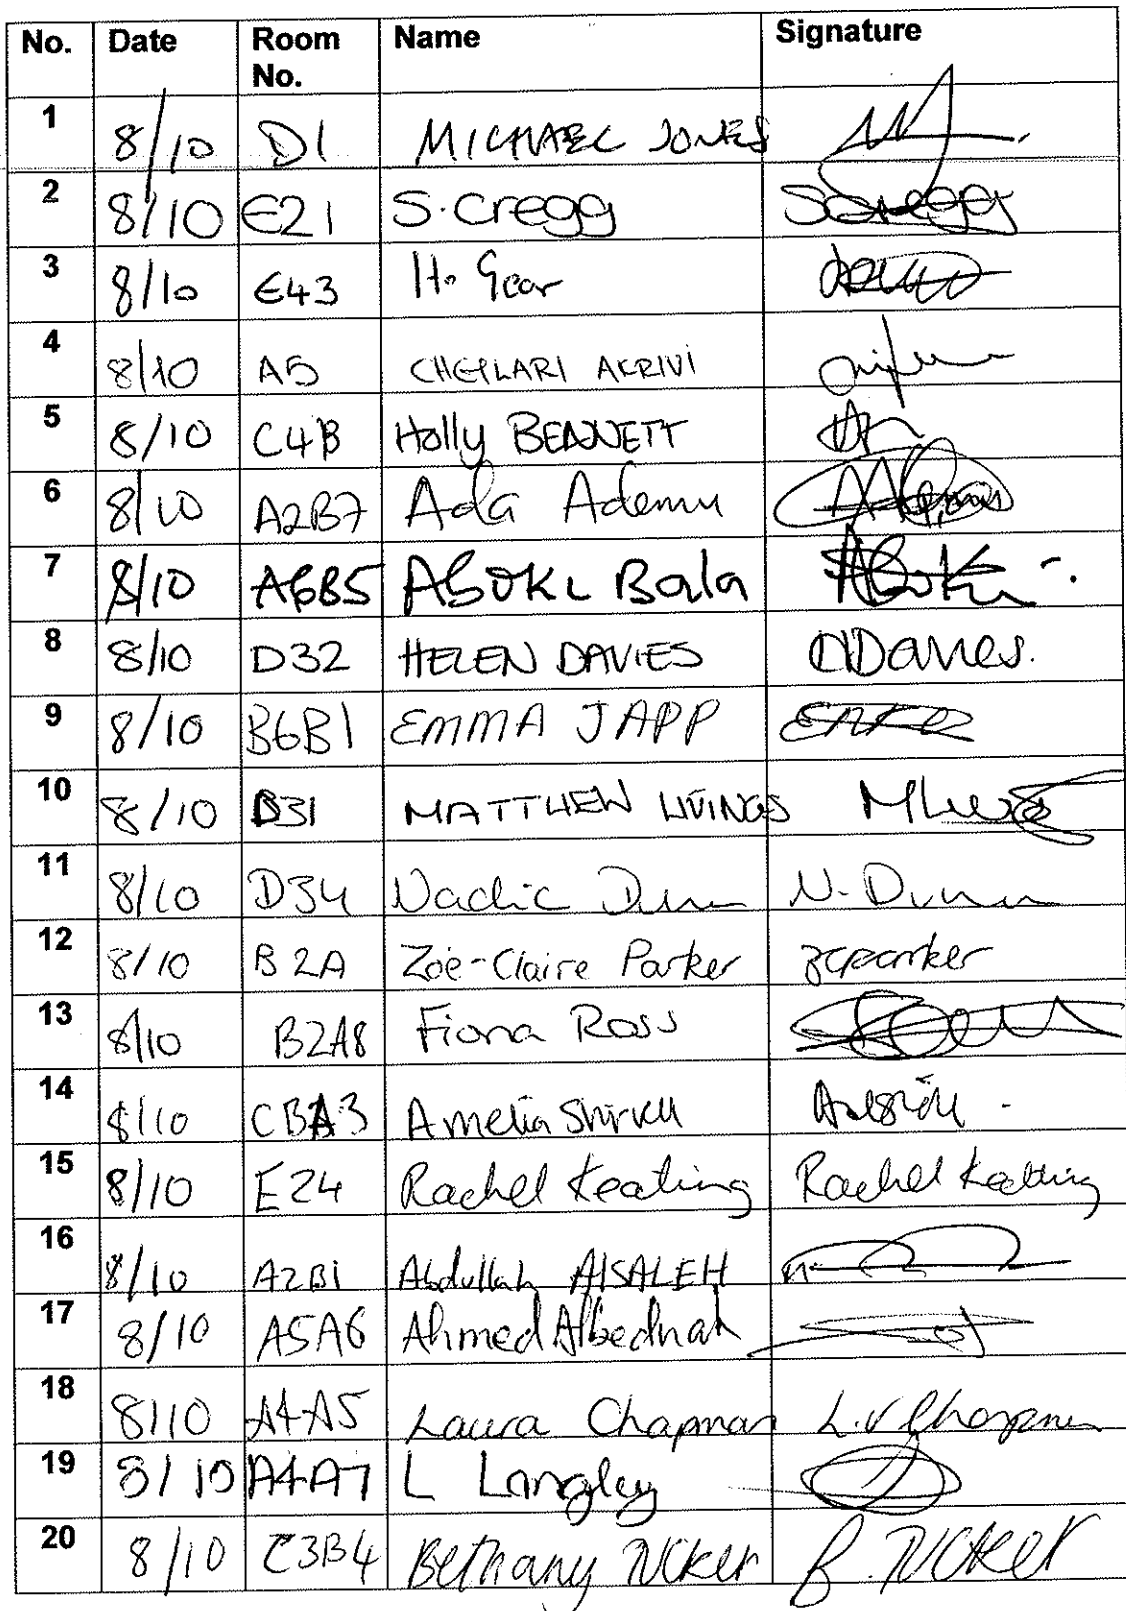 No. Date Room No. Name Signature
1 8/10 D1 MICHAEL JONES
2 8/10 E21 S. Cregg Scregg
3 8/10 E43 H. Gear
4 8/10 A5 AKRIVI
5 8/10 C4B Holly BENNETT
6 8/10 A2B7 Ada Ademu
7 8/10 A6B5 Aboki Bala Aboki
8 8/10 D32 HELEN DAVIES HDavies.
9 8/10 B6B1 EMMA JAPP
10 8/10 D31 MATTHEW LIVINGS
11 8/10 D34 Nadic Dunn N. Dunn
12 8/10 B2A Zoe-Claire Parker zcparker
13 8/10 B2A8 Fiona Ross
14 8/10 CBA3 Amelia
15 8/10 E24 Rachel Keating Rachel Keating
16 8/10 A2B1 Abdullah AlSALEH
17 8/10 A5A6 Ahmed Albednah
18 8/10 A4A5 Laura Chapman L.V Chapman
19 8/10 A4A7 L Langley
20 8/10 C3B4 Bethany Tucker B. Tucker